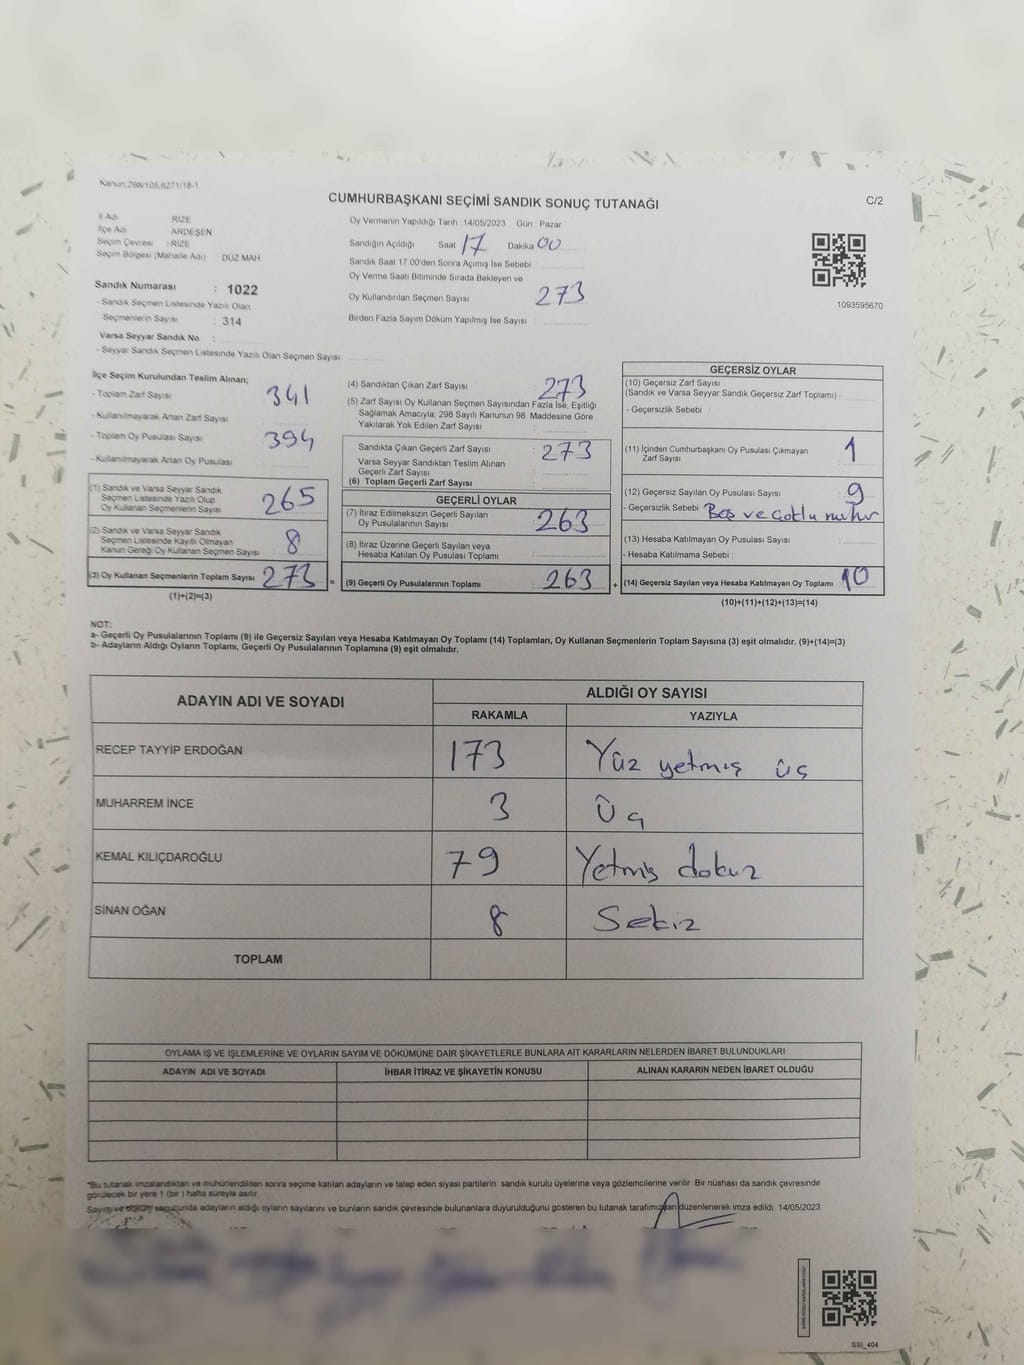 Kanun:298/105,6271/18-1
CUMHURBAŞKANI SEÇİMİ SANDIK SONUÇ TUTANAĞI
C/2
İl Adı RİZE
İlçe Adı ARDEŞEN
Seçim Çevresi :RİZE
Seçim Bölgesi (Mahalle Adı) DÜZ MAH
Sandık Numarası : 1022
- Sandık Seçmen Listesinde Yazılı Olan
Seçmenlerin Sayısı : 314
Varsa Seyyar Sandık No :
- Seyyar Sandık Seçmen Listesinde Yazılı Olan Seçmen Sayısı:
Oy Vermenin Yapıldığı Tarih 14/05/2023 Gün Pazar
Sandığın Açıldığı Saat 17 Dakika 00
Sandık Saat 17:00'den Sonra Açımış İse Sebebi
Oy Verme Saati Bitiminde Sırada Bekleyen ve
Oy Kullandırılan Seçmen Sayısı 273
Birden Fazla Sayım Döküm Yapılmış İse Sayısı :
1093595670
İlçe Seçim Kurulundan Teslim Alınan;
- Toplam Zarf Sayısı 341
- Kullanılmayarak Artan Zarf Sayısı
- Toplam Oy Pusulası Sayısı 394
- Kullanılmayarak Artan Oy Pusulası
(1) Sandık ve Varsa Seyyar Sandık
Seçmen Listesinde Yazılı Olup
Oy Kullanan Seçmenlerin Sayısı 265
(2) Sandık ve Varsa Seyyar Sandık
Seçmen Listesinde Kayıtlı Olmayan
Kanun Gereği Oy Kullanan Seçmen Sayısı 8
(3) Oy Kullanan Seçmenlerin Toplam Sayısı 273 =
(1)+(2)=(3)
(4) Sandıktan Çıkan Zarf Sayısı 273
(5) Zarf Sayısı Oy Kullanan Seçmen Sayısından Fazla İse, Eşitliği
Sağlamak Amacıyla, 298 Sayılı Kanunun 98. Maddesine Göre
Yakılarak Yok Edilen Zarf Sayısı
Sandıkta Çıkan Geçerli Zarf Sayısı 273
Varsa Seyyar Sandıktan Teslim Alınan
Geçerli Zarf Sayısı
(6) Toplam Geçerli Zarf Sayısı
GEÇERLİ OYLAR
(7) İtiraz Edilmeksizin Geçerli Sayılan
Oy Pusulalarının Sayısı 263
(8) İtiraz Üzerine Geçerli Sayılan veya
Hesaba Katılan Oy Pusulası Toplamı
(9) Geçerli Oy Pusulalarının Toplamı 263 +
GEÇERSİZ OYLAR
(10) Geçersiz Zarf Sayısı
(Sandık ve Varsa Seyyar Sandık Geçersiz Zarf Toplamı) :
- Geçersizlik Sebebi :
(11) İçinden Cumhurbaşkanı Oy Pusulası Çıkmayan
Zarf Sayısı 1
(12) Geçersiz Sayılan Oy Pusulası Sayısı 9
- Geçersizlik Sebebi Boş ve Çoklu mühür
(13) Hesaba Katılmayan Oy Pusulası Sayısı :
- Hesaba Katılmama Sebebi :
(14) Geçersiz Sayılan veya Hesaba Katılmayan Oy Toplamı 10
(10)+(11)+(12)+(13)=(14)
NOT:
a- Geçerli Oy Pusulalarının Toplamı (9) ile Geçersiz Sayılan veya Hesaba Katılmayan Oy Toplamı (14) Toplamları, Oy Kullanan Seçmenlerin Toplam Sayısına (3) eşit olmalıdır. (9)+(14)=(3)
b- Adayların Aldığı Oyların Toplamı, Geçerli Oy Pusulalarının Toplamına (9) eşit olmalıdır.
ADAYIN ADI VE SOYADI
ALDIĞI OY SAYISI
RAKAMLA YAZIYLA
RECEP TAYYİP ERDOĞAN 173 Yüz yetmiş üç
MUHARREM İNCE 3 Üç
KEMAL KILIÇDAROĞLU 79 Yetmiş dokuz
SİNAN OĞAN 8 Sekiz
TOPLAM
OYLAMA İŞ VE İŞLEMLERİNE VE OYLARIN SAYIM VE DÖKÜMÜNE DAİR ŞİKAYETLERLE BUNLARA AİT KARARLARIN NELERDEN İBARET BULUNDUKLARI
ADAYIN ADI VE SOYADI İHBAR İTİRAZ VE ŞİKAYETİN KONUSU ALINAN KARARIN NEDEN İBARET OLDUĞU
"Bu tutanak imzalandıktan ve mühürlendikten sonra seçime katılan adayların ve talep eden siyasi partilerin sandık kurulu üyelerine veya gözlemcilerine verilir. Bir nüshası da sandık çevresinde
görülecek bir yere 1 (bir ) hafta süreyle asılır.
Sayım ve döküm sonucunda adayların aldığı oyların sayılarını ve bunların sandık çevresinde bulunanlara duyurulduğunu gösteren bu tutanak tarafımızdan düzenlenerek imza edildi 14/05/2023
SSI_404